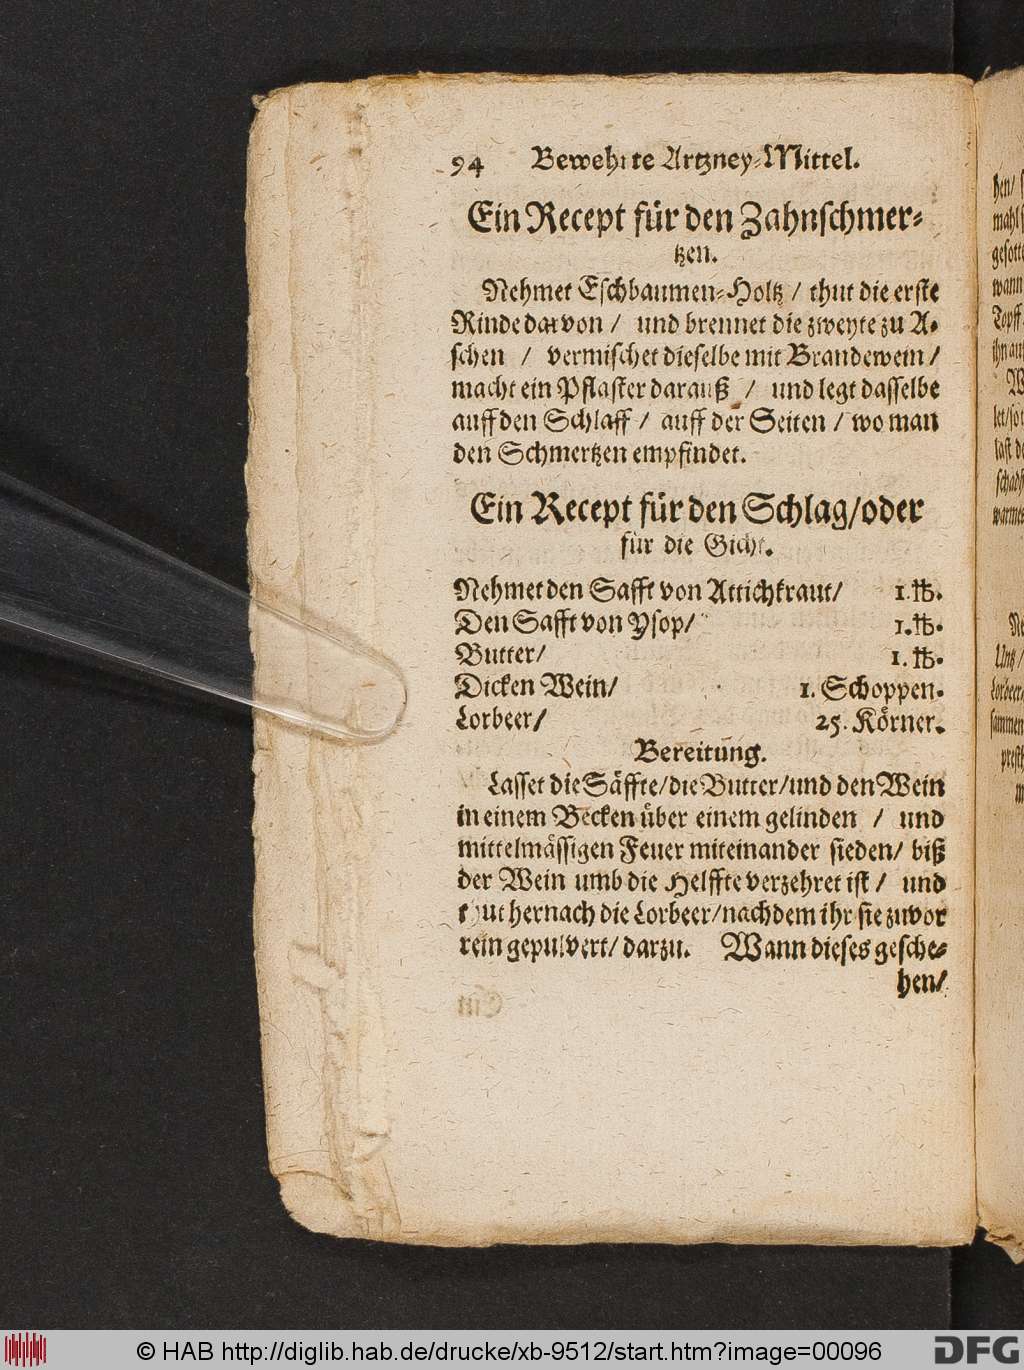 94 Bewehrte Artzney-Mittel.
Ein Recept für den Zahnschmer-
tzen.
Nehmet Eschbaumen-Holtz / thut die erste
Rinde darvon / und brennet die zweyte zu A-
schen / vermischet dieselbe mit Brandewein /
macht ein Pflaster darauß / und legt dasselbe
auff den Schlaff / auff der Seiten / wo man
den Schmertzen empfindet.
Ein Recept für den Schlag/oder
für die Gicht.
Nehmet den Safft von Attichkraut/ 1. ℔.
Den Safft von Ysop/ 1. ℔.
Butter/ 1. ℔.
Dicken Wein/ 1. Schoppen.
Lorbeer/ 25. Körner.
Bereitung.
Lasset die Säffte/die Butter/und den Wein
in einem Becken über einem gelinden / und
mittelmässigen Feuer miteinander sieden/ biß
der Wein umb die Helffte verzehret ist / und
thut hernach die Lorbeer/nachdem ihr sie zuvor
rein gepulvert/ darzu. Wann dieses gesche-
hen/
hen/
mahl
gesotte
wann
Topff
ihn au
© HAB http://diglib.hab.de/drucke/xb-9512/start.htm?image=00096
DFG